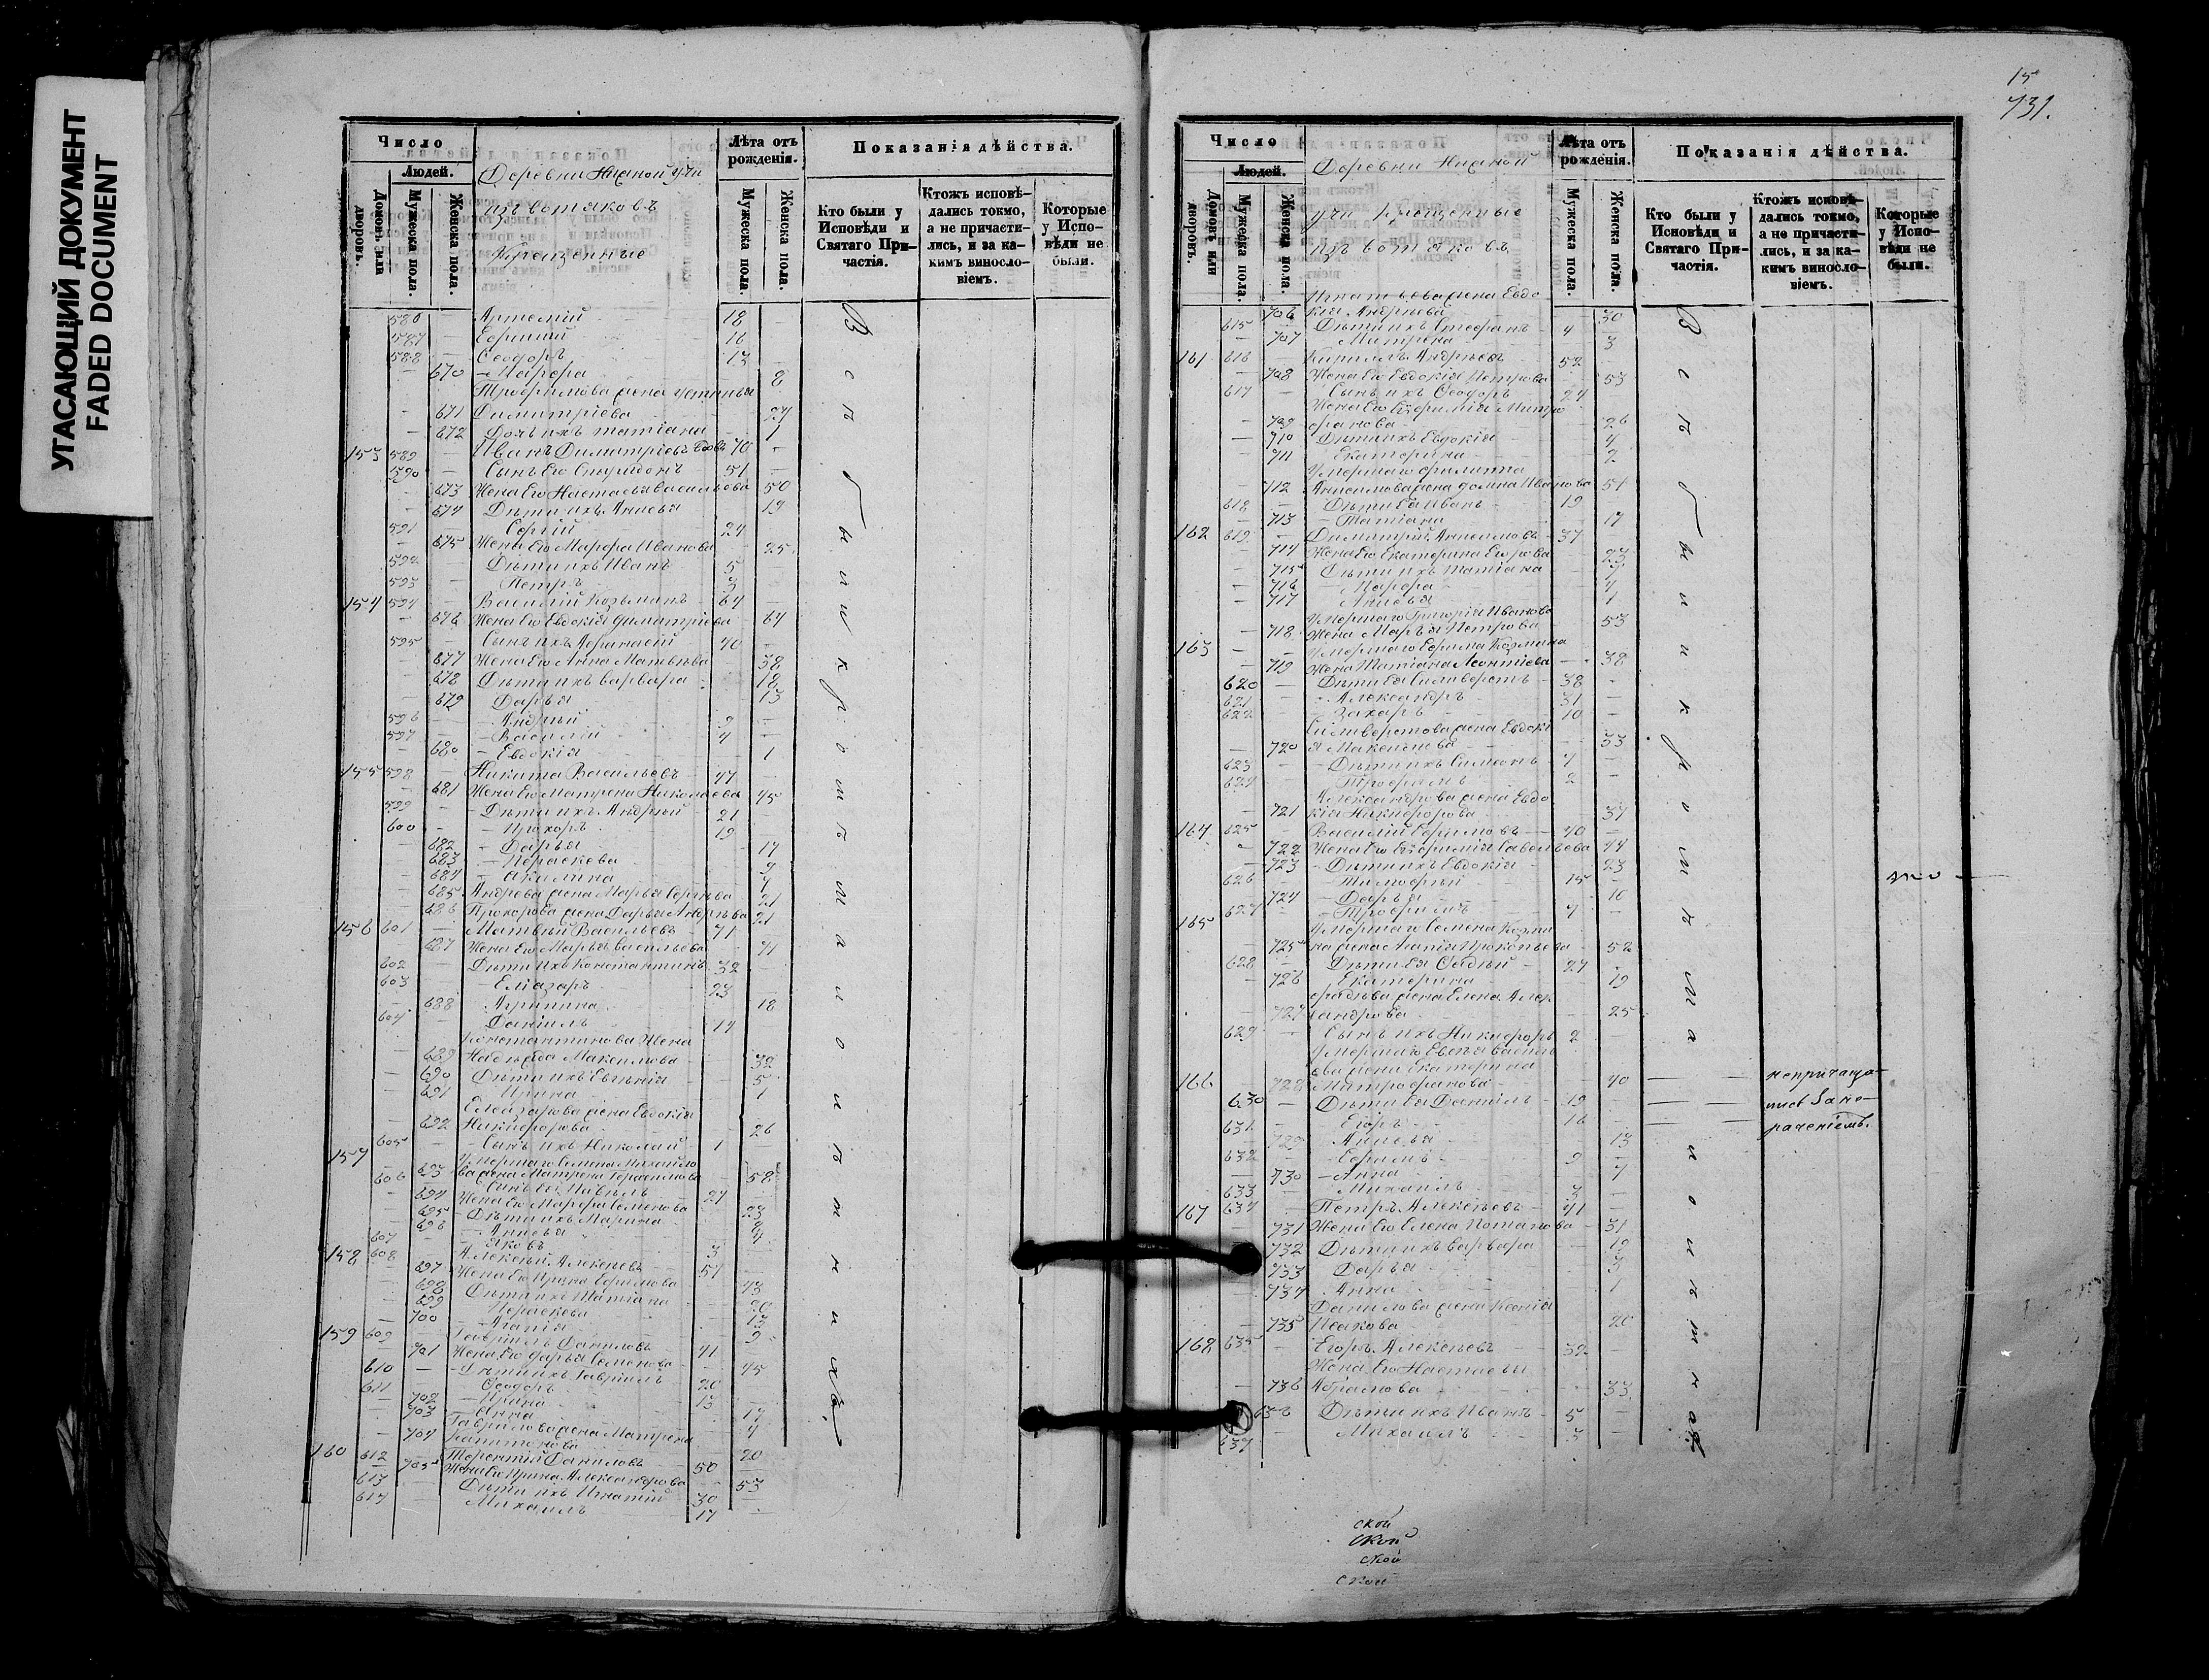 УГАСАЮЩИЙ ДОКУМЕНТ
FADED DOCUMENT
Число
Людей.
Домовъ или дворовъ.
Мужеска пола.
Женска пола.
Деревни Нижной Учи
изъ вотяковъ
Крещенные
Лѣта отъ рожденія.
Мужеска пола.
Женска пола.
Показанія дѣйства.
Кто были у Исповѣди и Святаго Причастія.
Ктожъ исповѣдались токмо, а не причастились, и за какимъ винословіемъ.
Которые у Исповѣди не были.
586 Артемій 18
587 16
588 Ѳеодоръ 13
670 Марфа 8
Трофимова жена Устинья
671 Димитріева 27
672 Дочь ихъ Татіана 1
153 589 Иванъ Димитріевъ 70
590 Сынъ Его Спиридонъ 51
673 Жена Его Настасья Васильева 50
674 Дѣти ихъ Анисья 19
591 Сергій 24
675 Жена Его Марфа Иванова 25
592 Дѣти ихъ Иванъ 5
593 Петръ 3
154 594 Василій Козьминъ 64
676 Жена Его Евдокія Димитріева 64
595 Сынъ ихъ Афанасій 40
677 Жена Его Анна Матвѣева 38
678 Дѣти ихъ Варвара 18
679 Дарья 13
596 Андрей 9
597 Василій 4
680 Евдокія 1
155 598 Никита Васильевъ 47
681 Жена Его Матрена Николаева 45
599 Дѣти ихъ Андрей 21
600 Прохоръ 19
682 Дарья 17
683 Параскева 9
684 Акилина 7
685 Андреева жена Марья Сергѣева 21
686 Прохорова жена Дарья Андрѣева 21
156 601 Матвѣй Васильевъ 71
687 Жена Его Марья Васильева 71
602 Дѣти ихъ Константинъ 32
603 Еліазаръ 23
688 Агрипина 18
604 Даніилъ 14
Константинова Жена
689 Надежда Максимова 32
690 Дѣти ихъ Евгенія 5
691 Ирина 1
Елеазарова жена Евдокія
692 Никифорова 26
605 Сынъ ихъ Николай 1
157 Умершаго Семена Михайло
693 ва жена Матрена Герасимова 58
606 Сынъ Ея Павелъ 27
694 Жена Его Марфа Семенова 23
695 Дѣти ихъ Марина 8
696 Анисья 4
607 Яковъ 3
158 608 Алексѣй Алексѣевъ 51
697 Жена Его Ирина Ефимова 43
698 Дѣти ихъ Татіана 20
699 Параскева 13
700 Агапія 9
159 609 Гавріилъ Даниловъ 41
701 Жена Его Дарья Семенова 45
610 Дѣти ихъ Гавріилъ 20
611 Ѳеодоръ 13
702 Ирина 17
703 Анна 4
Гаврилова жена Матрена
704 20
160 612 Терентій Даниловъ 50
705 Жена Его Ирина Александрова 53
613 Дѣти ихъ Игнатій 30
614 Михаилъ 17
15
731.
Число
Людей.
Домовъ или дворовъ.
Мужеска пола.
Женска пола.
Деревни Нижной
Учи Крещенные
изъ вотяковъ
Лѣта отъ рожденія.
Мужеска пола.
Женска пола.
Показанія дѣйства.
Кто были у Исповѣди и Святаго Причастія.
Ктожъ исповѣдались токмо, а не причастились, и за какимъ винословіемъ.
Которые у Исповѣди не были.
Игнатьева жена Евдо
706 кія Андрѣева 30
615 Дѣти ихъ Стефанъ 4
707 Матрена 3
161 616 Кириллъ Андрѣевъ 52
708 Жена Его Евдокія Петрова 53
617 Сынъ ихъ Ѳеодоръ 24
Жена Его Евфимія Митро
709 фанова 26
710 Дѣти ихъ Евдокія 4
711 Екатерина 2
Умершаго Филиппа
712 Анисимова жена Домна Иванова 51
618 Дѣти Ея Иванъ 19
713 Татіана 17
162 619 Димитрій Анисимовъ 37
714 Жена Его Екатерина Егорова 23
715 Дѣти ихъ Татіана 7
716 Марфа 4
717 Анисья 1
Умершаго Григорія Иванова
718 Жена Марья Петрова 53
163 Умершаго Ефима Козмина
719 Жена Татіана Леонтіева 38
620 Дѣти Ея Сильверстъ 38
621 Александръ 31
622 Захаръ 10
Сильверстова жена Евдокі
720 я Максимова 33
623 Дѣти ихъ Симеонъ 7
624 Трофимъ 2
Александрова жена Евдо
721 кія Никифорова 37
164 625 Василій Ефимовъ 40
722 Жена Его Евфимія Савельева 44
723 Дѣти ихъ Евдокія 23
626 Тимофей 15
724 Дарья 10
627 Трофимъ 7
165 Умершаго Семена Козми
725 на жена Агапія Прокопьева 52
628 Дѣти Ея Фадѣй 27
726 Екатерина 19
Фадѣева жена Елена Алек
727 сандрова 25
629 Сынъ ихъ Никифоръ 2
Умершаго Евсѣя Василь
ева жена Екатерина
166 728 Митрофанова 40
630 Дѣти Ея Даніилъ 19
631 Егоръ 16
729 Анисья 13
632 Ефимъ 9
730 Анна 7
633 Михаилъ 3
167 634 Петръ Алексѣевъ 41
731 Жена Его Елена Потапова 31
732 Дѣти ихъ Варвара 19
733 Дарья 3
734 Анна 1
Данилова жена Ксенія
735 Исакова 20
168 635 Егоръ Алексѣевъ 32
Жена Его Настасья
736 Абрамова 33
636 Дѣти ихъ Иванъ 5
637 Михаилъ 3
ской
ской
ской
ской